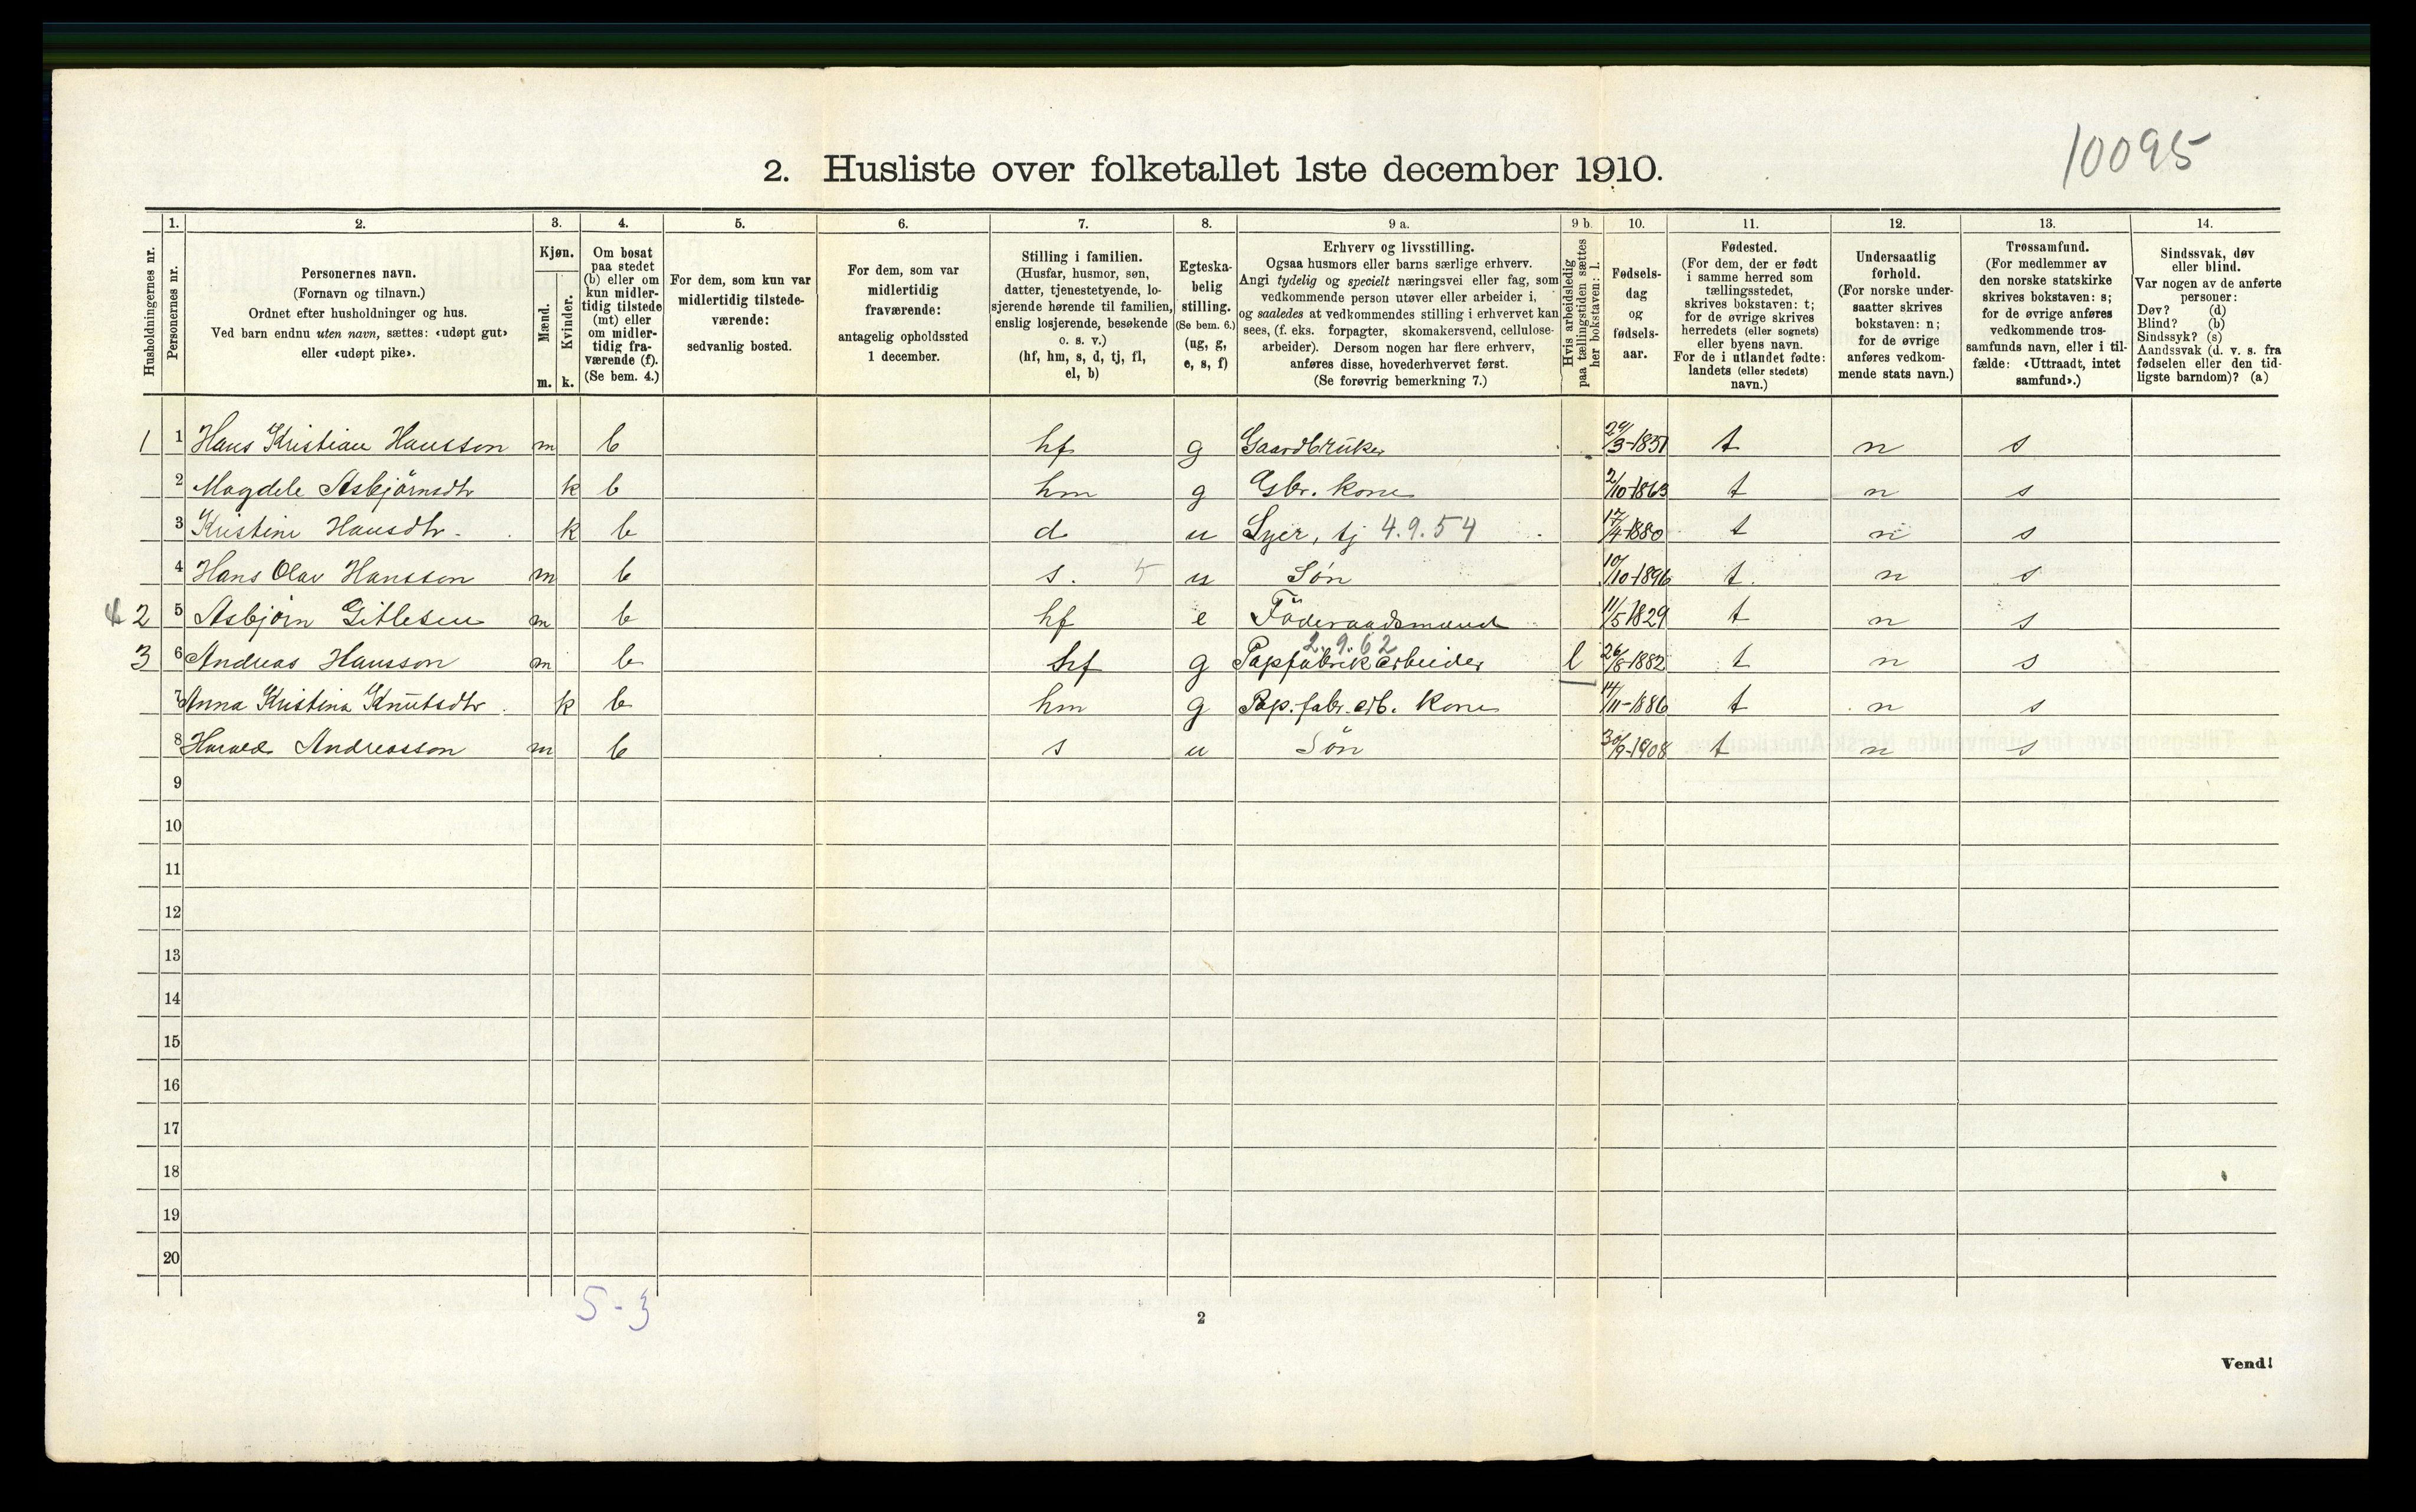 10095
2. Husliste over folketallet 1ste december 1910.
1. 2. 3. 4. 5. 6. 7. 8. 9 a. 9 b. 10. 11. 12. 13. 14.
Husholdningernes nr.
Personernes nr.
Personernes navn.
(Fornavn og tilnavn.)
Ordnet efter husholdninger og hus.
Ved barn endnu uten navn, sættes: «udøpt gut»
eller «udøpt pike».
Kjøn.
Mænd.
Kvinder.
m. k.
Om bosat
paa stedet
(b) eller om
kun midler-
tidig tilstede
(mt) eller
om midler-
tidig fra-
værende (f).
(Se bem. 4.)
For dem, som kun var
midlertidig tilstede-
værende:
sedvanlig bosted.
For dem, som var
midlertidig
fraværende:
antagelig opholdssted
1 december.
Stilling i familien.
(Husfar, husmor, søn,
datter, tjenestetyende, lo-
sjerende hørende til familien,
enslig losjerende, besøkende
o. s. v.)
(hf, hm, s, d, tj, fl,
el, b)
Egteska-
belig
stilling.
(Se bem. 6.)
(ug, g,
e, s, f)
Erhverv og livsstilling.
Ogsaa husmors eller barns særlige erhverv.
Angi tydelig og specielt næringsvei eller fag, som
vedkommende person utøver eller arbeider i,
og saaledes at vedkommendes stilling i erhvervet kan
sees, (f. eks. forpagter, skomakersvend, cellulose-
arbeider). Dersom nogen har flere erhverv,
anføres disse, hovederhvervet først.
(Se forøvrig bemerkning 7.)
Hvis arbeidsledig
paa tællingstiden sættes
her bokstaven: l.
Fødsels-
dag
og
fødsels-
aar.
Fødested.
(For dem, der er født
i samme herred som
tællingsstedet,
skrives bokstaven: t;
for de øvrige skrives
herredets (eller sognets)
eller byens navn.
For de i utlandet fødte:
landets (eller stedets)
navn.)
Undersaatlig
forhold.
(For norske under-
saatter skrives
bokstaven: n;
for de øvrige
anføres vedkom-
mende stats navn.)
Trossamfund.
(For medlemmer av
den norske statskirke
skrives bokstaven: s;
for de øvrige anføres
vedkommende tros-
samfunds navn, eller i til-
fælde: «Uttraadt, intet
samfund».)
Sindssvak, døv
eller blind.
Var nogen av de anførte
personer:
Døv? (d)
Blind? (b)
Sindssyk? (s)
Aandssvak (d. v. s. fra
fødselen eller den tid-
ligste barndom)? (a)
1 1 Hans Kristian Hansson m b hf g Gaardbruker 29/3-1851 t n s
2 Magdele Asbjörnsdtr k b hm g Gbr. kone 2/10-1863 t n s
3 Kristine Hansdtr. k b d u Syer, tj 4.9.54 17/4-1880 t n s
4 Hans Olav Hansson m b s. 5 u Søn 10/10-1896 t. n s
2 5 Asbjørn Gitlesen m b hf e Föderaadsmand 11/5 1829 t n s
2.9.62
3 6 Andreas Hansson m b hf g Papfabrikarbeider l 26/8-1882 t n s
7 Anna Kristina Knutsdtr. k b hm g Pap.fabr.arb. kone 14/11-1886 t n s
8 Harald Andreasson m b s u Søn 30/9-1908 t n s
9
10
11
12
13
14
15
16
17
18
19
20
5-3
2
Vend!